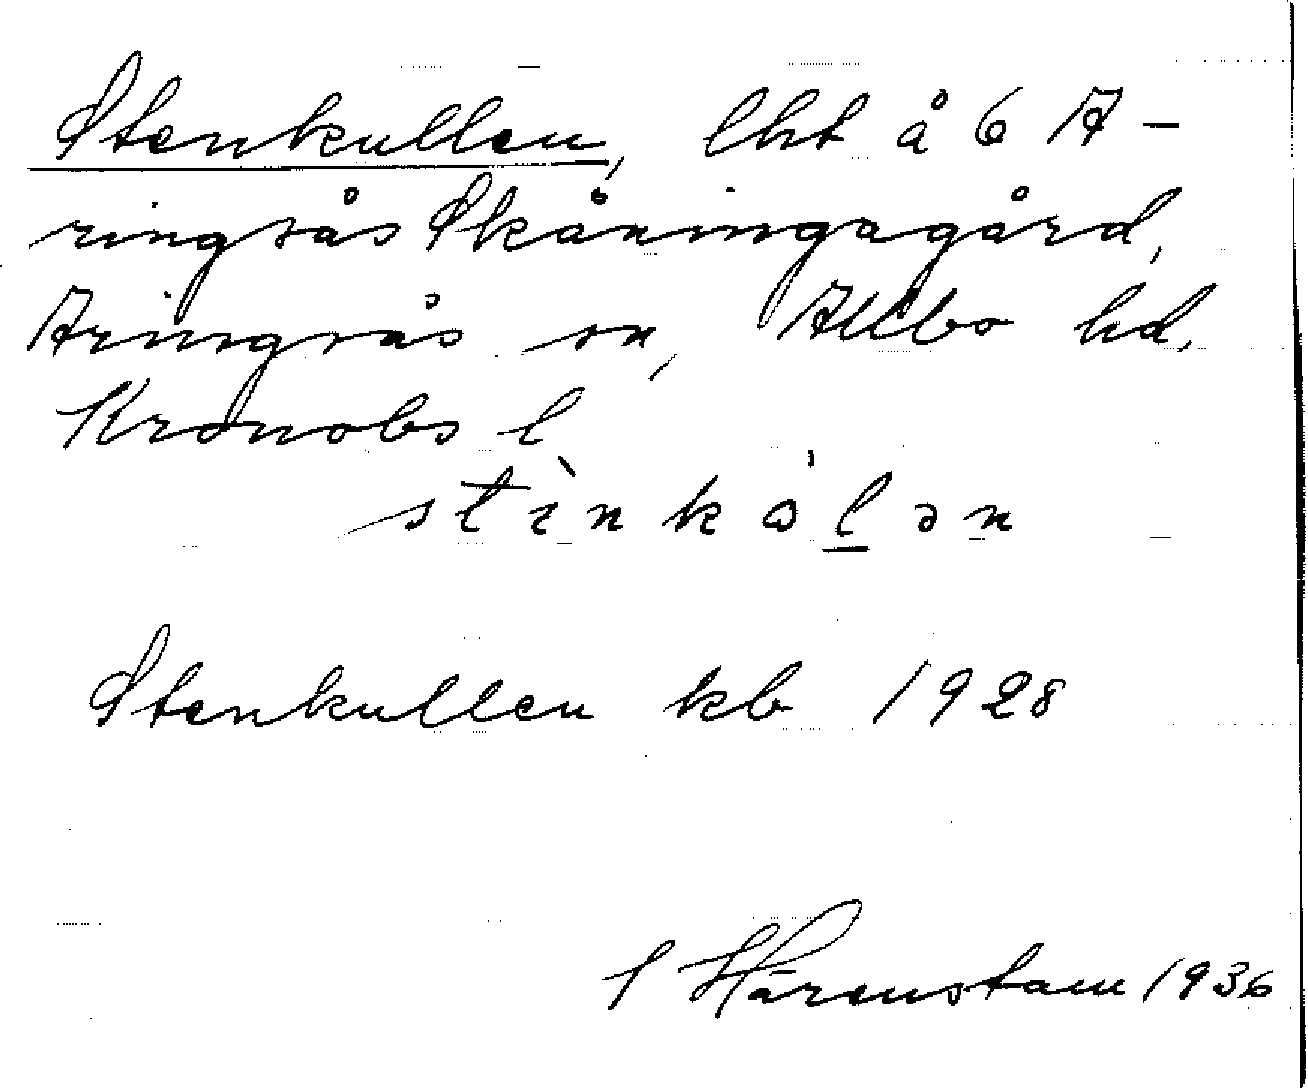 Stenkullen, lht å 6 A-
ringsås Skåningagård,
Aringsås sn, Allbo hd,
Kronobs l
stìnkálən
Stenkullen kb 1928
S Härenstam 1936